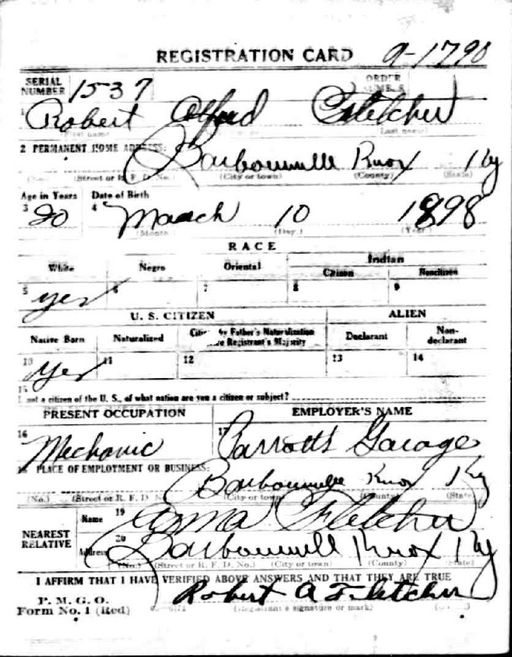 REGISTRATION CARD 9-1790
SERIAL NUMBER 1537 ORDER
1 Robert Alfred Fletcher
(Last name)
2 PERMANENT HOME ADDRESS:
Barbourville Knox Ky
(Street or R. F. D. No.) (City or town) (County) (State)
Age in Years Date of Birth
3 20 4 March 10 1898
(Month) (Day) (Year)
RACE
White Negro Oriental Indian
Citizen Noncitizen
5 yes 6 7 8 9
U. S. CITIZEN ALIEN
Native Born Naturalized Citizen by Father's Naturalization Before Registrant's Majority Declarant Non-declarant
10 Yes 11 12 13 14
15
If not a citizen of the U. S., of what nation are you a citizen or subject?
PRESENT OCCUPATION EMPLOYER'S NAME
16 Mechanic 17 Parrotts Garage
18 PLACE OF EMPLOYMENT OR BUSINESS:
Barbourville Knox Ky
(No.) (Street or R. F. D. No.) (City or town) (County) (State)
NEAREST RELATIVE Name 19 Anna Fletcher
Address 20 Barbourvill Knox Ky
(No.) (Street or R. F. D. No.) (City or town) (County) (State)
I AFFIRM THAT I HAVE VERIFIED ABOVE ANSWERS AND THAT THEY ARE TRUE
P. M. G. O.
Form No. 1 Robert A Fletcher
(Registrant's signature or mark)